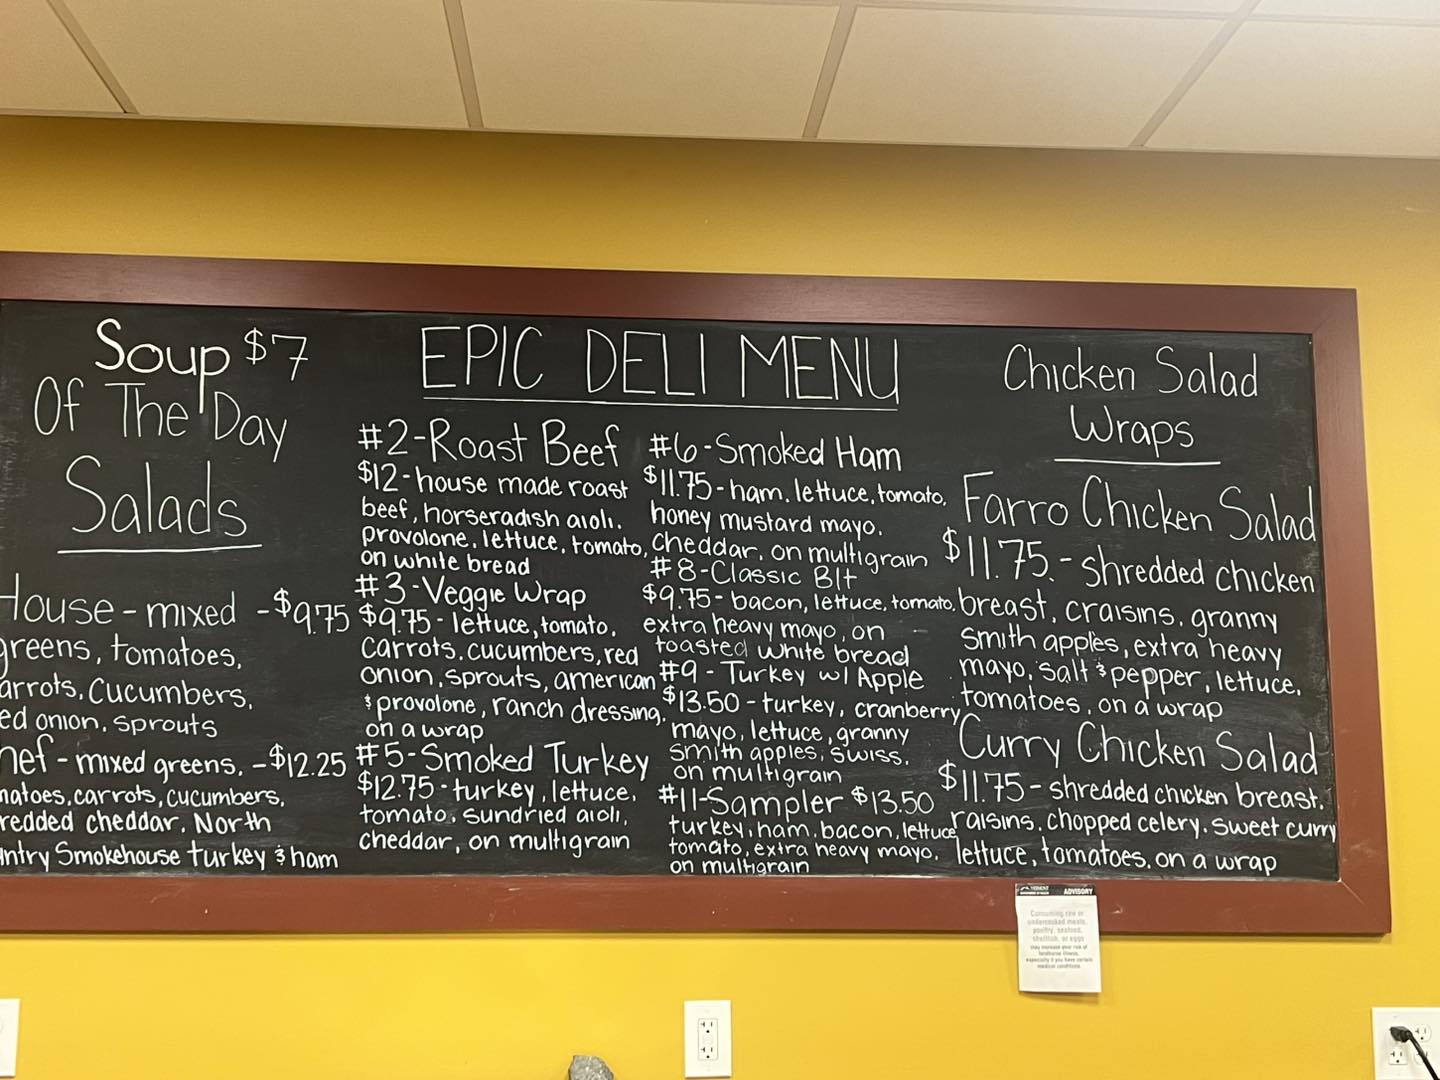 Soup $7
Of The Day
Salads
House - mixed - $9.75
greens, tomatoes,
arrots, cucumbers,
ed onion, sprouts
hef - mixed greens, - $12.25
matoes, carrots, cucumbers,
redded cheddar, North
untry Smokehouse turkey & ham
EPIC DELI MENU
#2 - Roast Beef
$12 - house made roast
beef, horseradish aioli,
provolone, lettuce, tomato,
on white bread
#3 - Veggie Wrap
$9.75 - lettuce, tomato,
carrots, cucumbers, red
onion, sprouts, american
& provolone, ranch dressing,
on a wrap
#5 - Smoked Turkey
$12.75 - turkey, lettuce,
tomato, sundried aioli,
cheddar, on multigrain
#6 - Smoked Ham
$11.75 - ham, lettuce, tomato,
honey mustard mayo,
cheddar, on multigrain
#8 - Classic Blt
$9.75 - bacon, lettuce, tomato,
extra heavy mayo, on
toasted white bread
#9 - Turkey w/ Apple
$13.50 - turkey, cranberry
mayo, lettuce, granny
smith apples, swiss,
on multigrain
#11 - Sampler $13.50
turkey, ham, bacon, lettuce
tomato, extra heavy mayo,
on multigrain
Chicken Salad
Wraps
Farro Chicken Salad
$11.75 - shredded chicken
breast, craisins, granny
smith apples, extra heavy
mayo, salt & pepper, lettuce,
tomatoes, on a wrap
Curry Chicken Salad
$11.75 - shredded chicken breast,
raisins, chopped celery, sweet curry
lettuce, tomatoes, on a wrap
VERMONT
ADVISORY
Consuming raw or
undercooked meats,
poultry, seafood,
shellfish, or eggs
may increase your risk of
foodborne illness,
especially if you have certain
medical conditions.